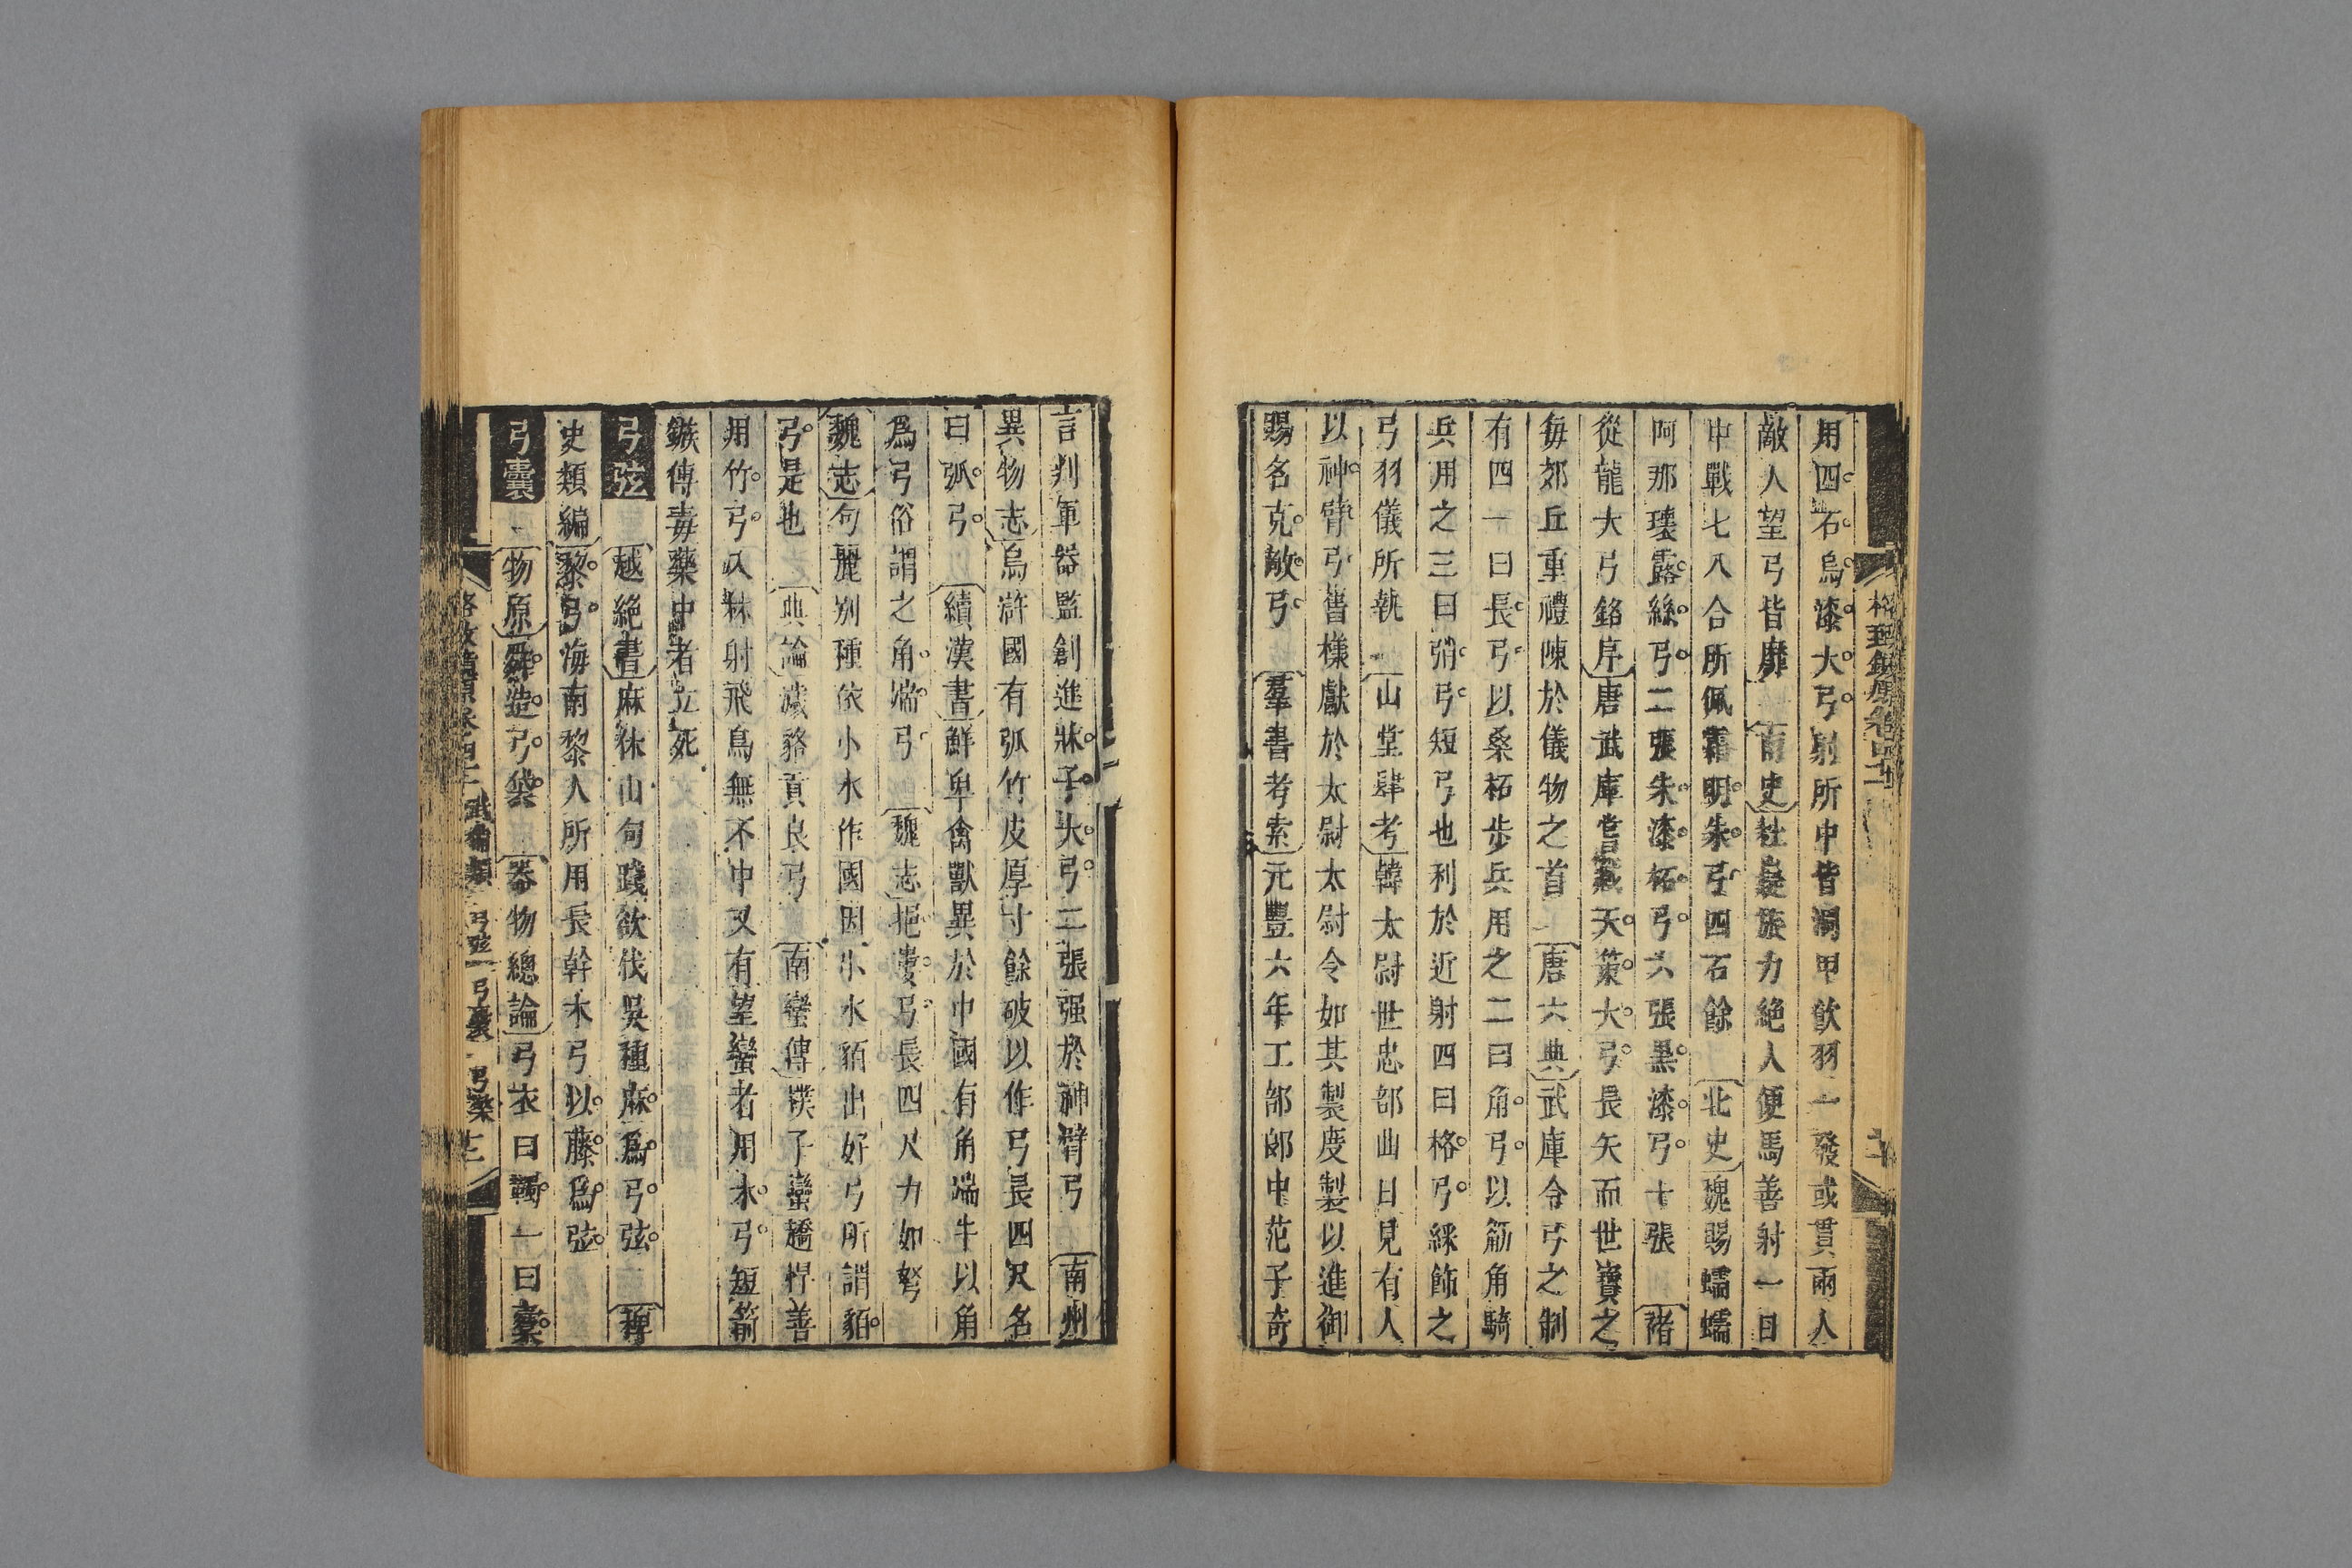 用四石烏漆大弓射所中皆洞甲飲羽一發或貫兩人
敵人望弓皆靡 南史杜嶷旅力絕人便馬善射一日
中戰七八合所佩霜明朱弓四石餘 北史魏賜蠕蠕
阿那瓌露絲弓二張朱漆柘弓六張黑漆弓十張 褚
從龍大弓銘序唐武庫嘗藏天策大弓長矢而世寶之
每郊丘重禮陳於儀物之首 唐六典武庫令弓之制
有四一曰長弓以桑柘步兵用之二曰角弓以筋角騎
兵用之三曰弰弓短弓也利於近射四曰格弓綵飾之
弓羽儀所執 山堂肆考韓太尉世忠部曲日見有人
以神臂弓舊樣獻於太尉太尉令如其製度製以進御
賜名克敵弓 羣書考索元豐六年工部郎中范子奇
格致鏡原卷四十二
言判軍器監創進牀子大弓二張强於神臂弓 南州
異物志烏滸國有弧竹皮厚寸餘破以作弓長四尺名
曰弧弓 續漢書鮮卑禽獸異於中國有角端牛以角
爲弓俗謂之角端弓 魏志挹婁弓長四尺力如弩
魏志句麗別種依小水作國因小水貊出好弓所謂貊
弓是也 典論濊貉貢良弓 南蠻傳樸子蠻趫悍善
用竹弓入林射飛鳥無不中又有望蠻者用木弓短箭
鏃傳毒藥中者立死
弓弦 越絕書麻林山句踐欲伐吳種麻爲弓弦 稗
史類編黎弓海南黎人所用長幹木弓以藤爲弦
弓囊 物原羿造弓袋 器物總論弓衣曰韣一曰櫜
格致鏡原卷四十二 武備類 弓弦 弓囊 弓檠 十二